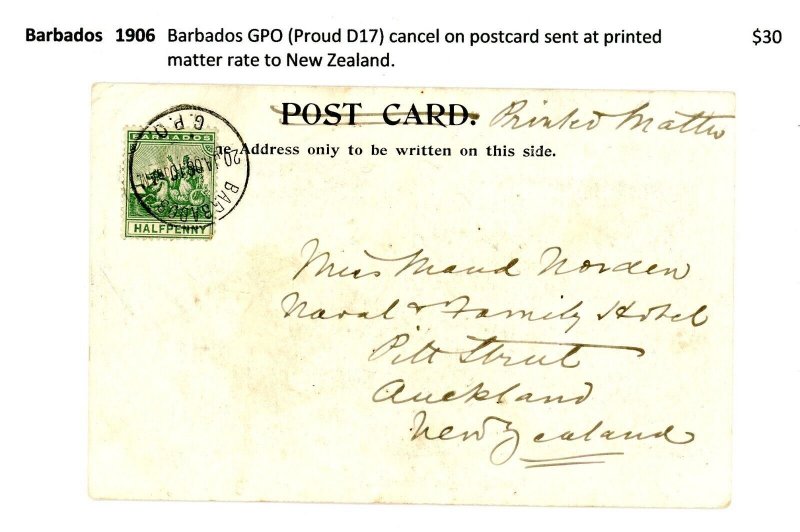 Barbados 1906 Barbados GPO (Proud D17) cancel on postcard sent at printed $30
matter rate to New Zealand.
POST CARD. Printed Matter
Address only to be written on this side.
G.P.O.
BARBADOS
BARBADOS
HALFPENNY
Miss Maud Norden
Naval & Family Hotel
Pitt Street
Auckland
New Zealand